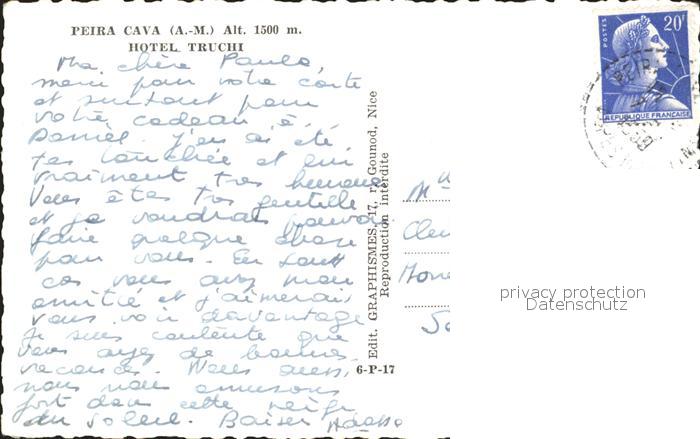 PEIRA CAVA (A.-M.) Alt. 1500 m.
HOTEL TRUCHI
Ma chère Paula,
merci pour votre carte
et surtout pour
votre cadeau à
Daniel. J'en ai été
très touchée et suis
vraiment très heureuse
Vous êtes très gentille
et je voudrais pouvoir
faire quelque chose
pour vous. En tout
cas vous avez mon
amitié et j'aimerais
vous voir davantage
Je suis contente que
vous ayez de bonnes
vacances. Nous aussi,
nous nous amusons
fort dans cette neige
au soleil. Baiser
Edit. GRAPHISMES, 17, r. Gounod, Nice
Reproduction interdite
6-P-17
POSTES
20F
REPUBLIQUE FRANÇAISE
privacy protection
Datenschutz